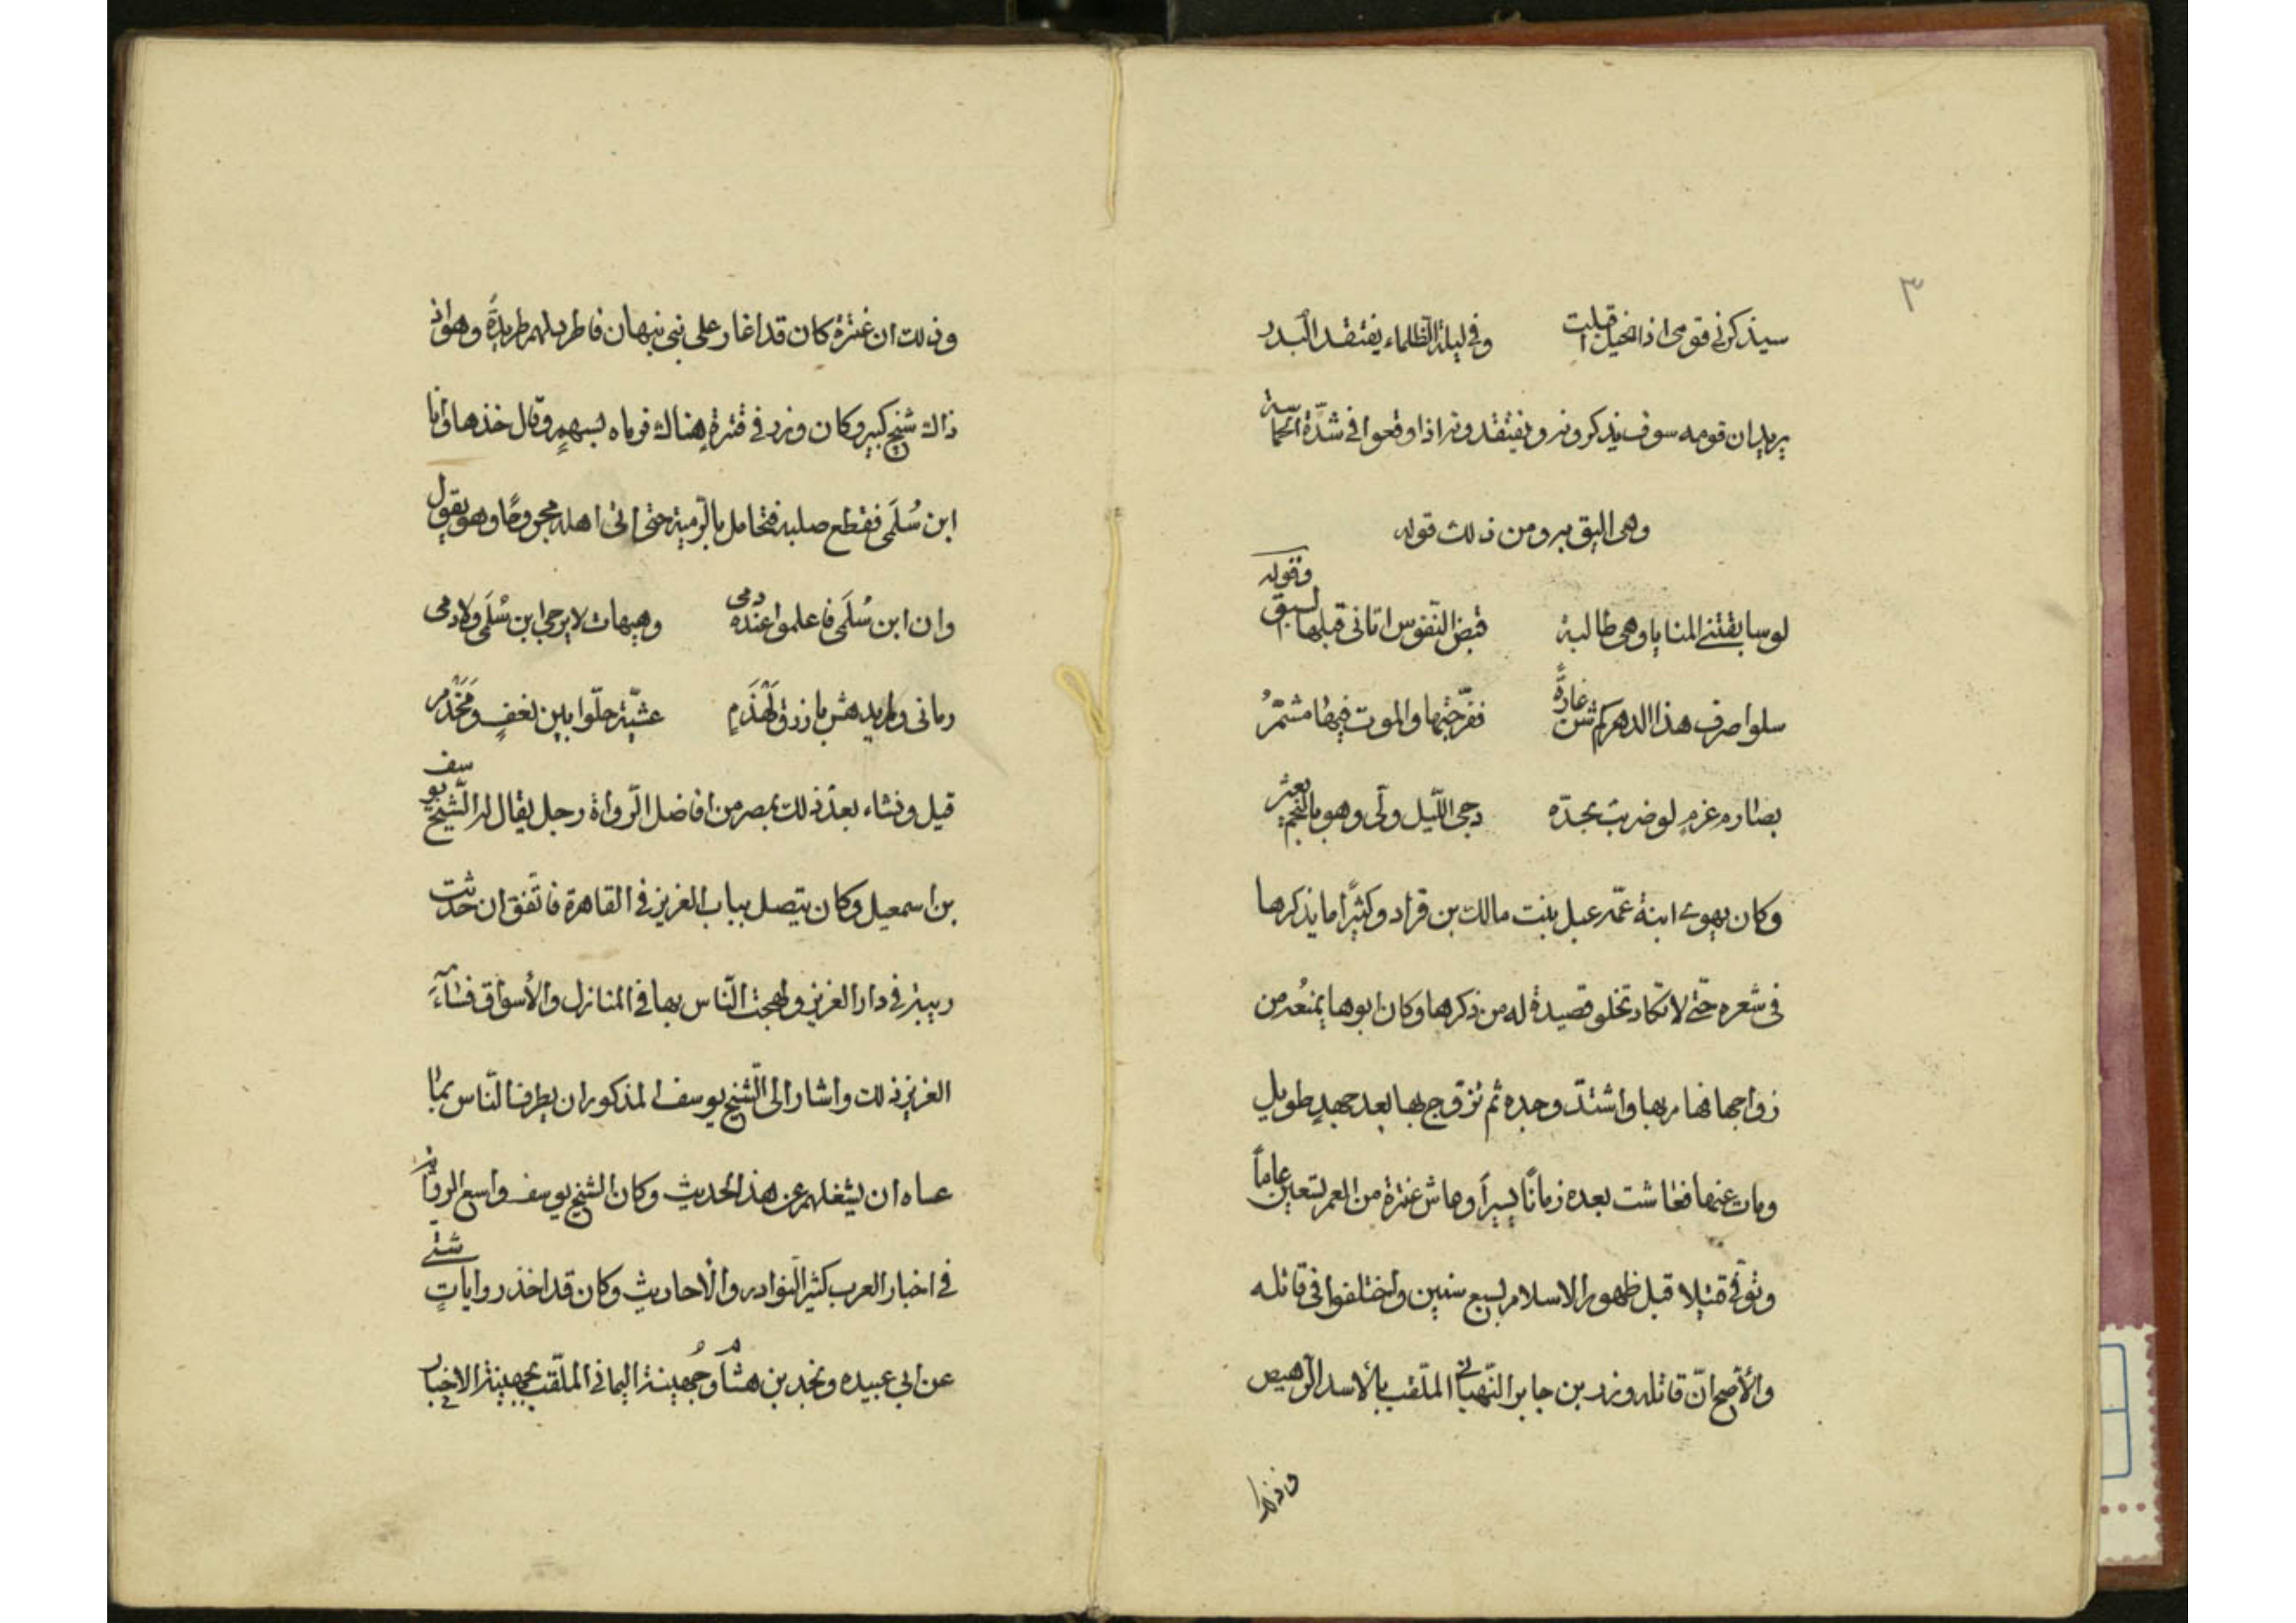 ٣
سيذكرني قومي اذا الخيل اقبلت وفي ليلة الظلماء يفتقد البدر
يريد ان قومه سوف يذكرونه ويفتقدونه اذا وقعوا في شدّة الحماسة
وهي اليق به ومن ذلك قوله
لو سابقتني المنايا وهي طالبة قبض النّفوس اتاني قبلها السبق
وقوله
سلوا صرف هذا الدهر كم شن غارةً ففرّجتها والموت فيها مشمّرُ
بصارم عزمٍ لو ضربت بحدّه دجى اللّيل ولّى وهو بالنجم يعثر
وكان يهوى ابنة عمّه عبل بنت مالك بن قراد وكثيرًا ما يذكرها
في شعره حتّى لا تكاد تخلو قصيدة له من ذكرها وكان ابوها يمنعُه من
زواجها فهام بها واشتدّ وجده ثم تزوّج بها بعد جهدٍ طويلٍ
ومات عنها فعاشت بعده زمانًا يسيرًا وعاش عنترة من العمر تسعين عاماً
وتوفّي قتيلا قبل ظهور الاسلام بسبع سنين واختلفوا في قاتله
والأصح انّ قاتله وزر بن جابر النّبهاني الملقب بالأسد الرّهيص
وذلك
وذلك ان عنترة كان قد اغار على بني نبهان فاطرد لهم طريدةً وهو اذ
ذاك شيخ كبير وكان وزر في فترةٍ هناك فرماه بسهمٍ وقال خذها وانا
ابن سُلمَى فقطع صلبه فتحامل بالرّمية حتى اتى اهله مجروحًا وهو يقول
وان ابن سُلمَى فاعلموا عنده دمي وهيهات لا يرجى ابن سُلمَى ولا دمي
رماني ولم يدهش بازرق لَهْذَمٍ عشيّة حلّوا بين نعفٍ ومَخْرَم
قيل ونشاء بعد ذلك بمصر من افاضل الرّواة رجل يقال له الشّيخ يوسف
بن اسمعيل وكان يتصل بباب العزيز في القاهرة فاتّفق ان حدثت
ريبة في دار العزيز ولهجت النّاس بها في المنازل والأسواق فسآءَ
العزيز ذلك واشار الى الشّيخ يوسف المذكور ان يطرف النّاس بما
عساه ان يشغلهم عن هذا الحديث وكان الشيخ يوسف واسع الرواية
في اخبار العرب كثير النّوادر والأحاديثِ وكان قد اخذ رواياتٍ شتّى
عن ابي عبيده ونجد بن هشام وجُهينة اليماني الملّقب بجهينة الاخبار